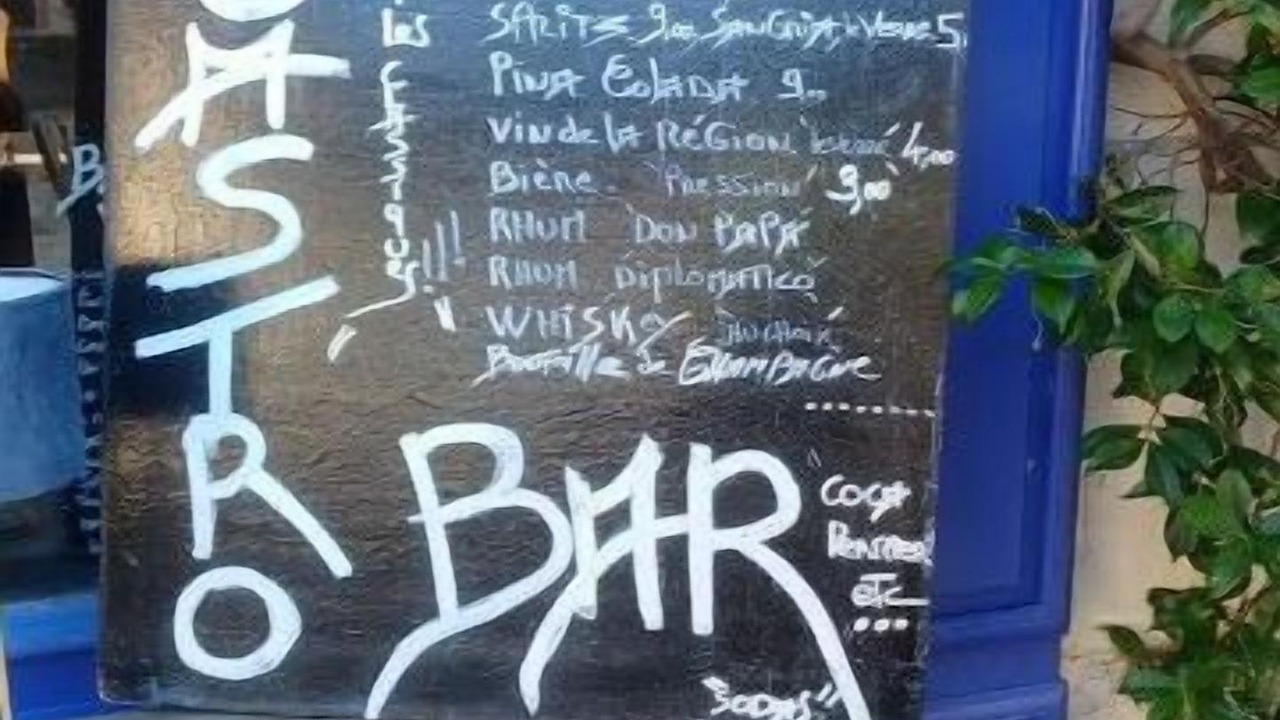 GASTRO
Les
SPRITZ 9,00 SANGRIA le Verre 5,
PiNA COLADA 9,00
Vin de la RÉGION 4,00
Bière "Pression" 9,00
RHUM DON PAPA
RHUM DiplOMATICO
WHiSKy AU CHOIX
Bouteille de
BAR
COCA
etc
...
"SODAS"
!!!